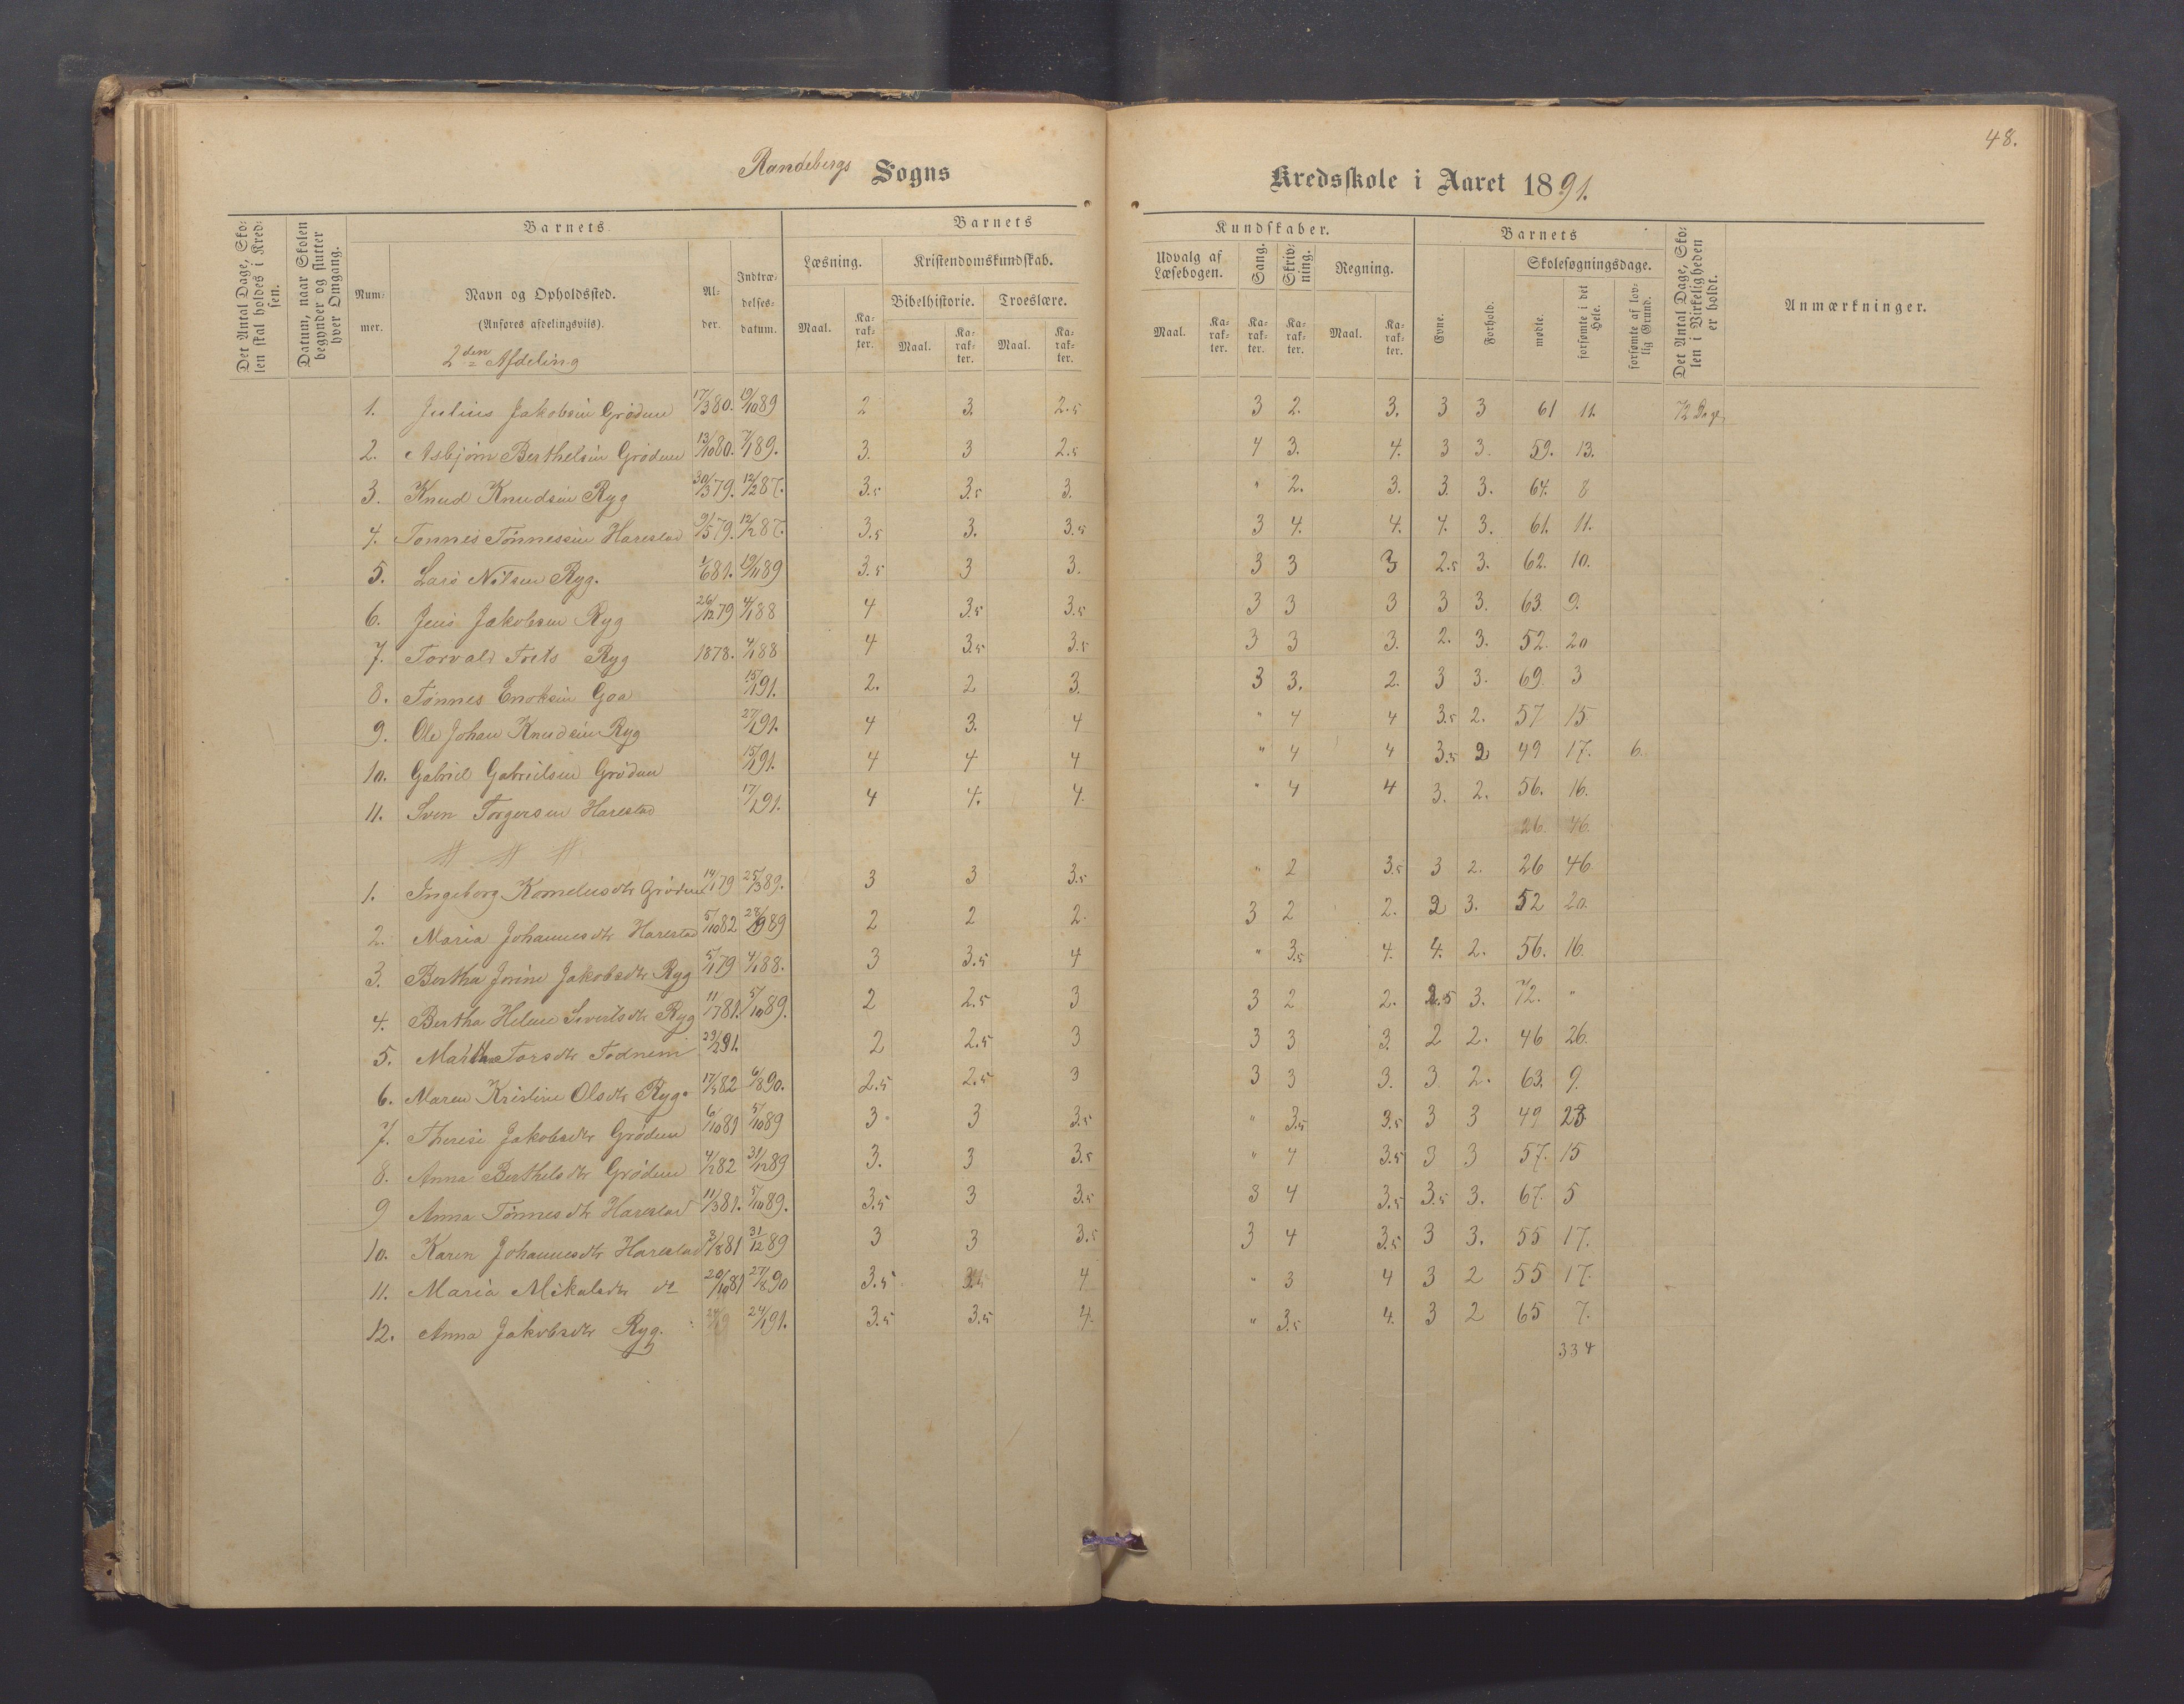 48.
Randebergs Sogns Kredsskole i Aaret 1891.
Det Antal Dage, Skolen skal holdes i Kredsen.
Datum, naar Skolen begynder og slutter hver Omgang.
Barnets
Barnets Kundskaber.
Barnets
Det Antal Dage, Skolen i Virkeligheden er holdt.
Anmærkninger.
Nummer.
Navn og Opholdssted.
(Anføres afdelingsvis).
2den Afdeling
Alder.
Indtrædelsesdatum.
Læsning.
Kristendomskundskab.
Bibelhistorie. Troeslære.
Udvalg af Læsebogen.
Sang.
Skrivning.
Regning.
Evne.
Forhold.
Skolesøgningsdage.
mødte.
forsømte i det Hele.
forsømte af lovlig Grund.
Maal. Karakter. Maal. Karakter. Maal. Karakter. Maal. Karakter. Karakter. Karakter. Maal. Karakter.
1. Julius Jakobsen Grødem 17/3 80. 19/10 89 2 3. 2.5 3 2. 3. 3 3 61 11. 72 Dage
2. Asbjørn Berthelsen Grødem 13/10 80. 7/1 89. 3. 3 2.5 4 3. 4. 3 3. 59. 13.
3. Knud Knudsen Ryg 30/3 79. 12/12 87. 3.5 3.5 3. " 2. 3. 3. 3. 64. 8
4. Tønnes Tønnessen Harestad 9/5 79. 12/12 87. 3.5 3. 3.5 3 4. 4. 4. 3. 61. 11.
5. Lars Nilsen Ryg. 1/6 81. 19/11 89 3.5 3 3. 3 3 3 2.5 3. 62. 10.
6. Jens Jakobsen Ryg 26/12 79 4/1 88 4 3.5 3.5 3 3 3 3 3. 63. 9.
7. Torvald Ryg 1878. 4/1 88 4 3.5 3.5 3 3 3. 2. 3. 52. 20
8. Tønnes Enoksen Goa 15/1 91. 2. 2 3. 3 3. 2. 3 3. 69. 3
9. Ole Johan Knudsen Ryg 27/1 91. 4 3. 4 " 4 4 3.5 2. 57 15
10. Gabriel Gabrielsen Grødem 15/1 91. 4 4 4 " 4 4 3.5 2 49 17. 6.
11. Sven Torgersen Harestad 17/1 91. 4 4. 4. " 4 4 3. 2. 56. 16.
26. 46.
1. Ingeborg Kornelusdtr Grødem 14/1 79 25/3 89. 3 3 3.5 " 2 3.5 3 2. 26 46
2. Maria Johannesdtr Harestad 5/10 82 28/9 89 2 2 2. 3 2 2. 2 3. 52 20.
3. Bertha Jorine Jakobsdtr Ryg 5/1 79 4/1 88. 3 3.5 4 " 3.5 4. 4. 2. 56. 16.
4. Bertha Helene Sivertsdtr Ryg 11/7 81. 5/10 89. 2 2.5 3 3 2 2. 2.5 3. 72. "
5. Martha Torsdtr Todnem 29/2 91. 2 2.5 3 3 3 3. 2 2. 46 26.
6. Maren Kristine Olsdtr Ryg. 17/5 82 6/8 90. 2.5 2.5 3 3 3 3. 3. 2. 63. 9.
7. Therese Jakobsdtr Grødem 6/10 81 5/10 89 3 3 3.5 " 3.5 3.5 3 3 49 23.
8. Anna Berthelsdtr Grødem 4/2 82 31/12 89 3. 3 3.5 " 4 3.5 3 3 57. 15
9 Anna Tønnesdtr Harestad 11/3 81. 5/10 89. 3.5 3 3.5 3 4 3.5 3.5 3. 67. 5
10. Karen Johannesdtr Harestad 3/8 81 31/12 89 3 3 3.5 3 4 3.5 3 3. 55 17.
11. Maria Mikalsdtr do 20/10 81 27/8 90 3.5 3.5 4 " 3 4 3 2 55 17.
12. Anna Jakobsdtr Ryg. 24/1 91. 3.5 3.5 4. " 3.5 4. 3 2 65 7.
334